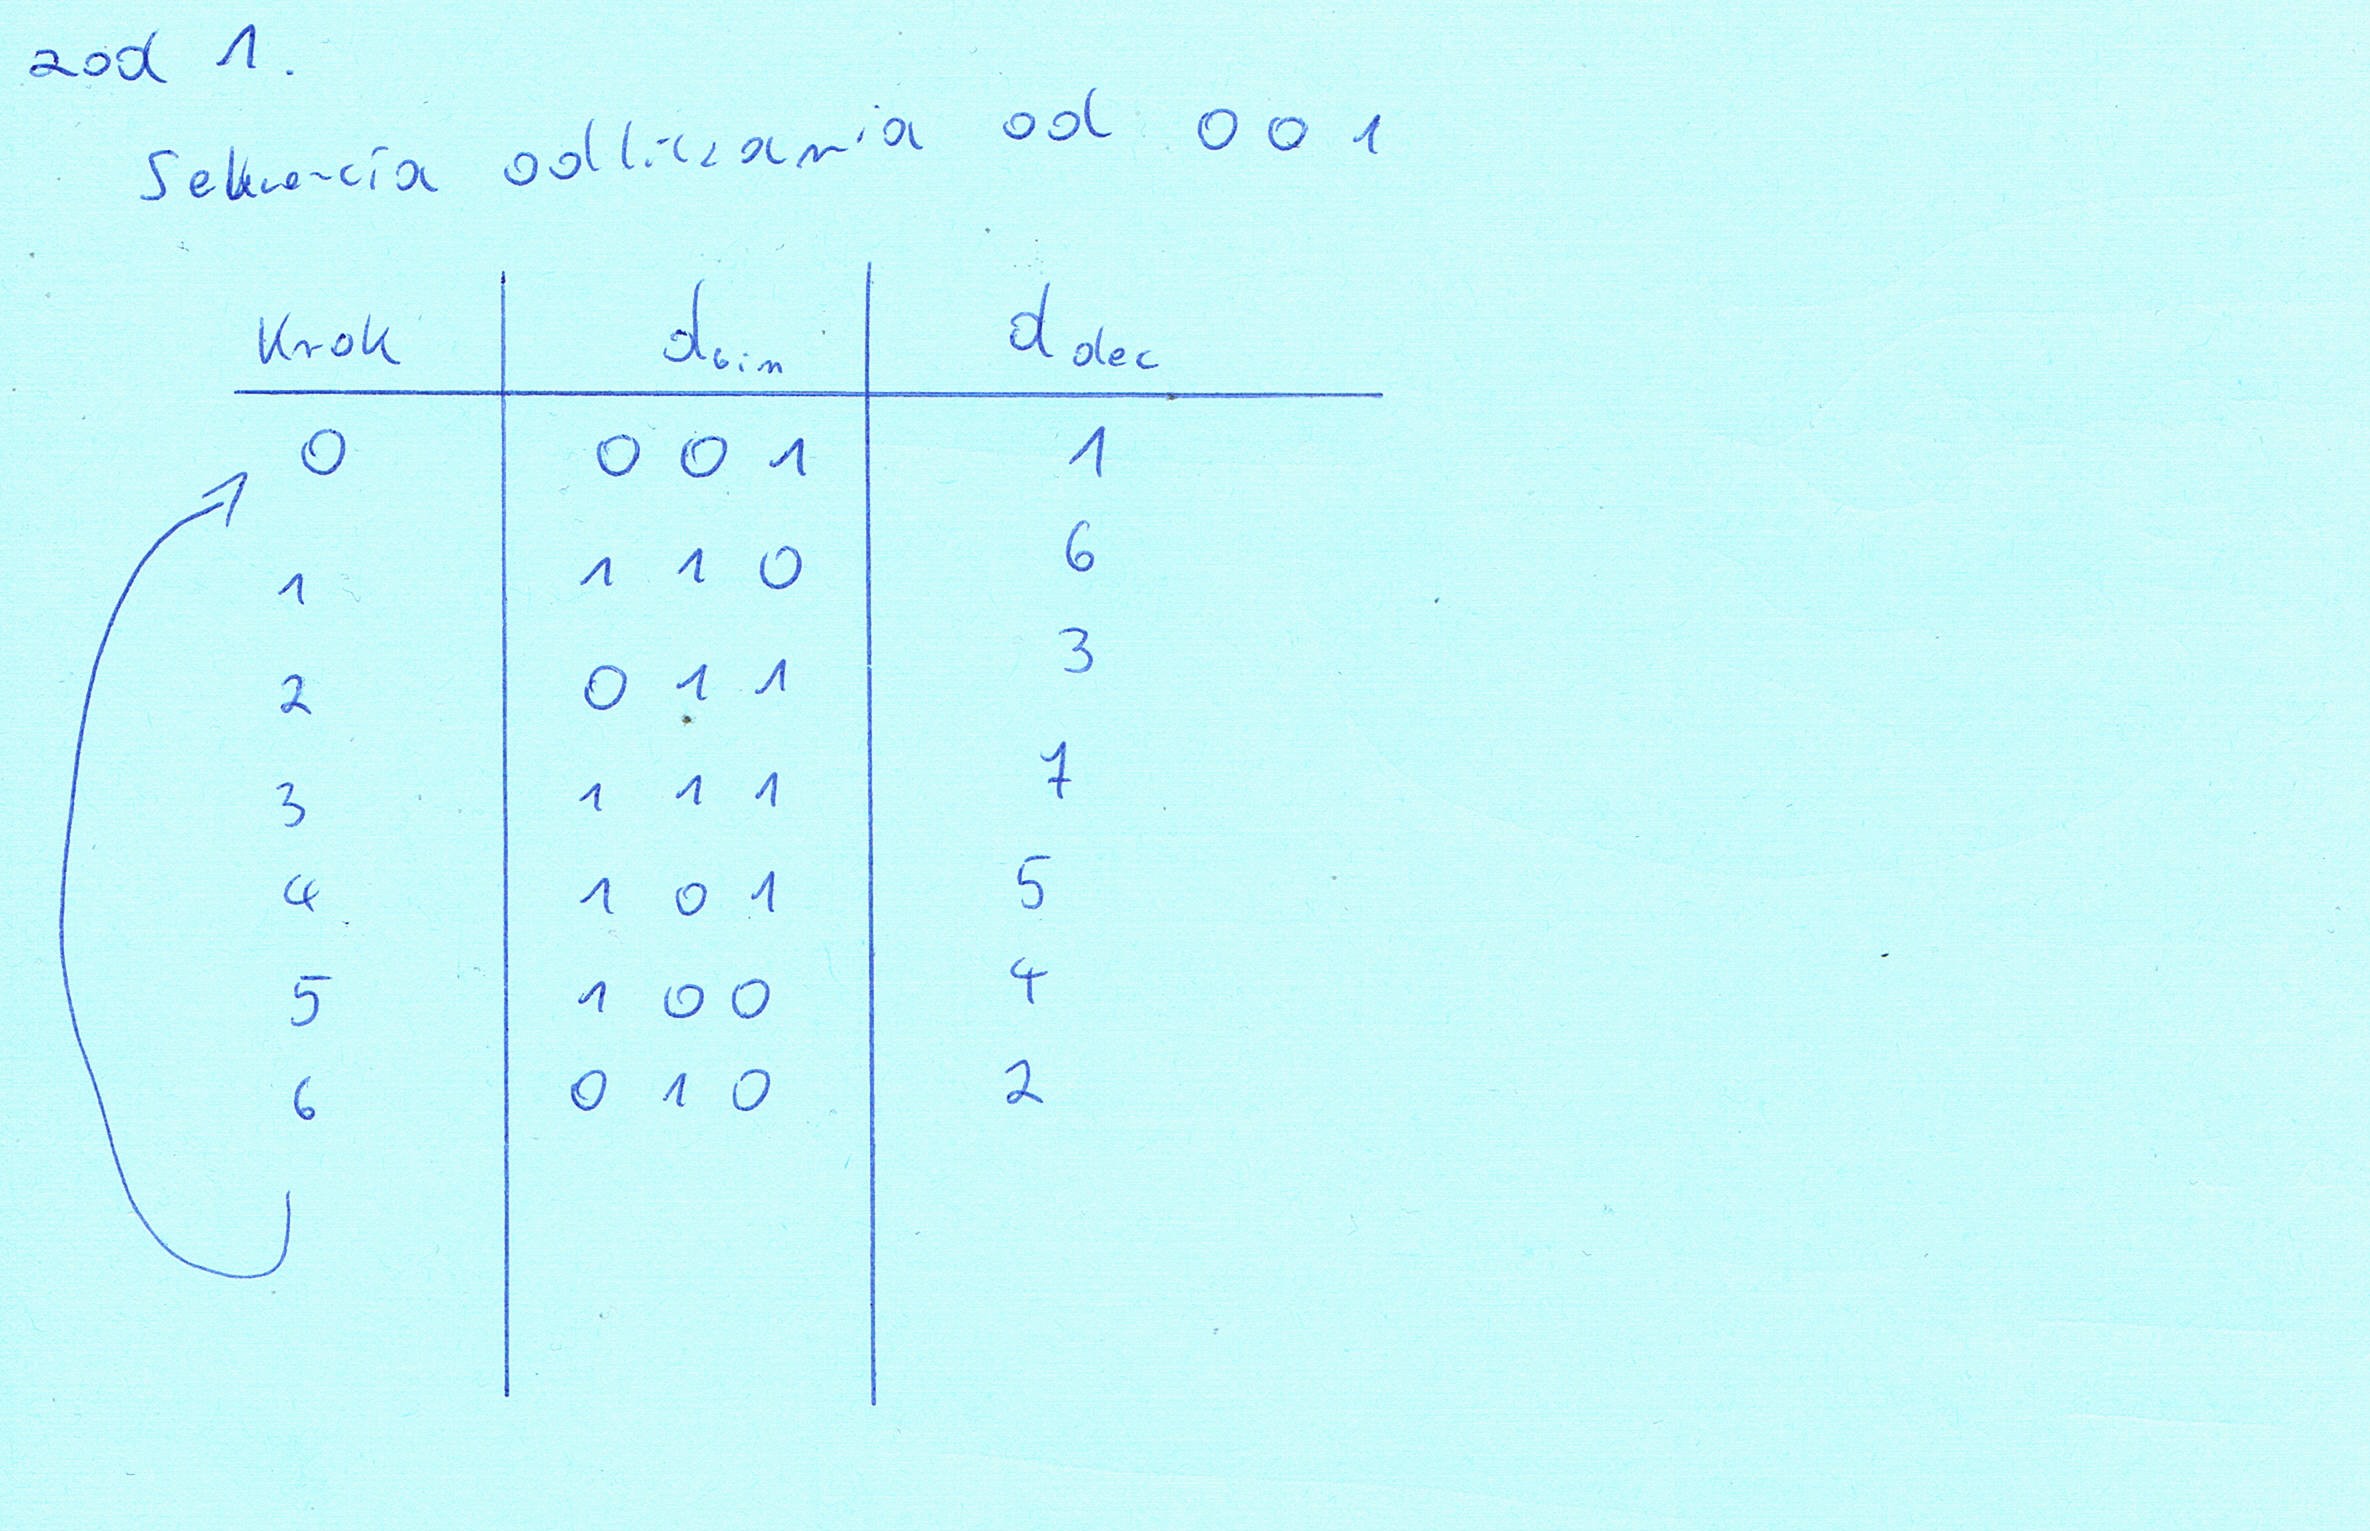 zad 1.
Sekwencja odliczania od 0 0 1
Krok d bin d dec
0 0 0 1 1
1 1 1 0 6
2 0 1 1 3
3 1 1 1 7
4 1 0 1 5
5 1 0 0 4
6 0 1 0 2